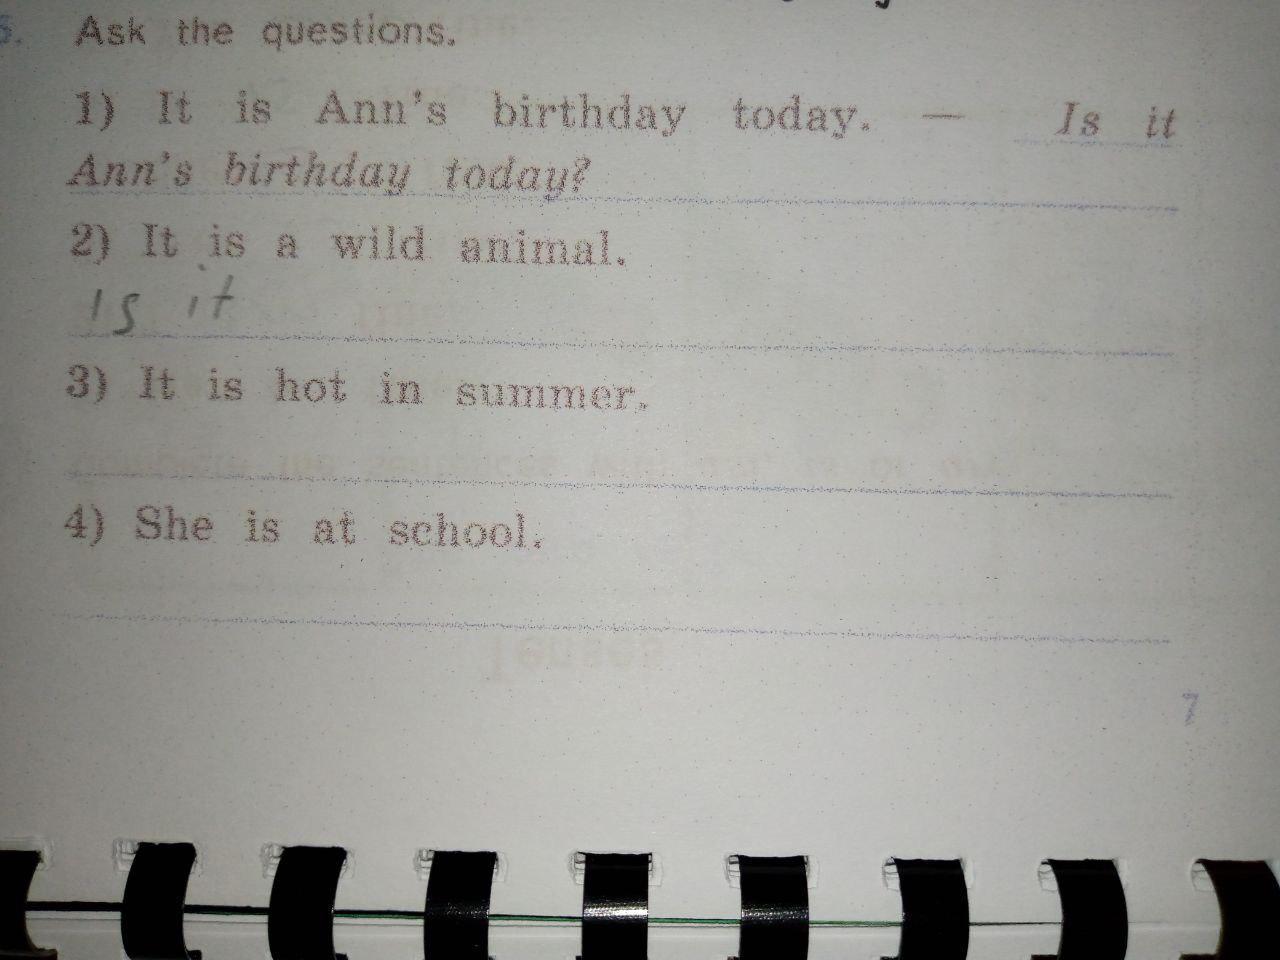 Ask the questions.
1) It is Ann's birthday today. — Is it
Ann's birthday today?
2) It is a wild animal.
Is it
3) It is hot in summer.
4) She is at school.
7